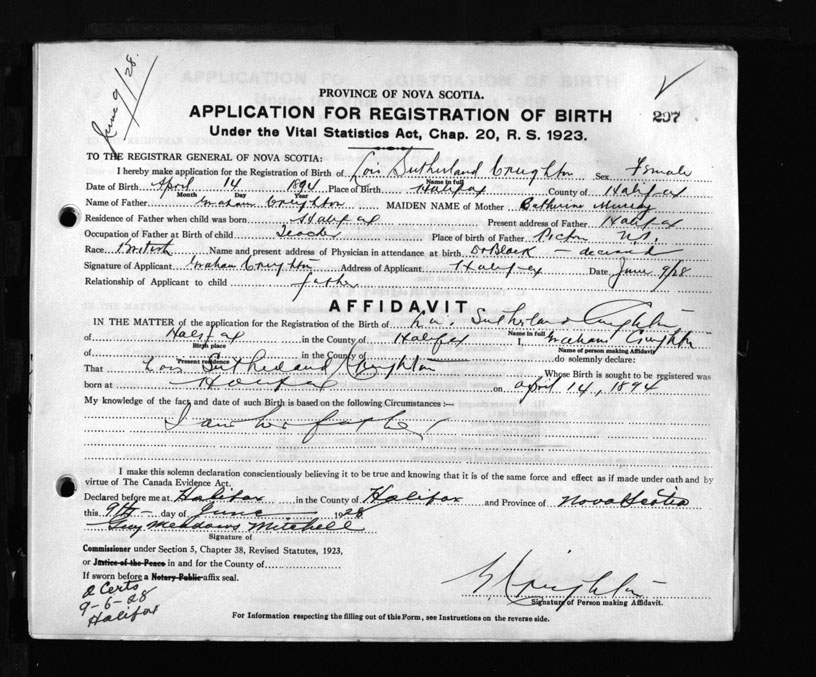 June 9/28.
PROVINCE OF NOVA SCOTIA.
APPLICATION FOR REGISTRATION OF BIRTH
297
Under the Vital Statistics Act, Chap. 20, R. S. 1923.
TO THE REGISTRAR GENERAL OF NOVA SCOTIA:
I hereby make application for the Registration of Birth of Lois Sutherland Creighton Sex Female
Name in full
Date of Birth April 14 1894 Place of Birth Halifax County of Halifax
Month Day Year
Name of Father Graham Creighton MAIDEN NAME of Mother Catherine Murray
Residence of Father when child was born Halifax Present address of Father Halifax
Occupation of Father at Birth of child Teacher Place of birth of Father Pictou N.S.
Race British Name and present address of Physician in attendance at birth Dr Black — deceased
Signature of Applicant Graham Creighton Address of Applicant Halifax Date June 9/28
Relationship of Applicant to child father
AFFIDAVIT
IN THE MATTER of the application for the Registration of the Birth of Lois Sutherland Creighton
Name in full
of Halifax in the County of Halifax I, Graham Creighton
Birth place Name of person making Affidavit
of in the County of do solemnly declare:
Present residence
That Lois Sutherland Creighton Whose Birth is sought to be registered was
born at Halifax on April 14, 1894
My knowledge of the fact and date of such Birth is based on the following Circumstances :—
I am her father
I make this solemn declaration conscientiously believing it to be true and knowing that it is of the same force and effect as if made under oath and by
virtue of The Canada Evidence Act.
Declared before me at Halifax in the County of Halifax and Province of Nova Scotia
this 9th day of June 1928
Guy Meadows Mitchell
Signature of
Commissioner under Section 5, Chapter 38, Revised Statutes, 1923,
or Justice of the Peace in and for the County of
If sworn before a Notary Public affix seal.
2 Certs
9-6-28
Halifax
G Creighton
Signature of Person making Affidavit.
For Information respecting the filling out of this Form, see Instructions on the reverse side.